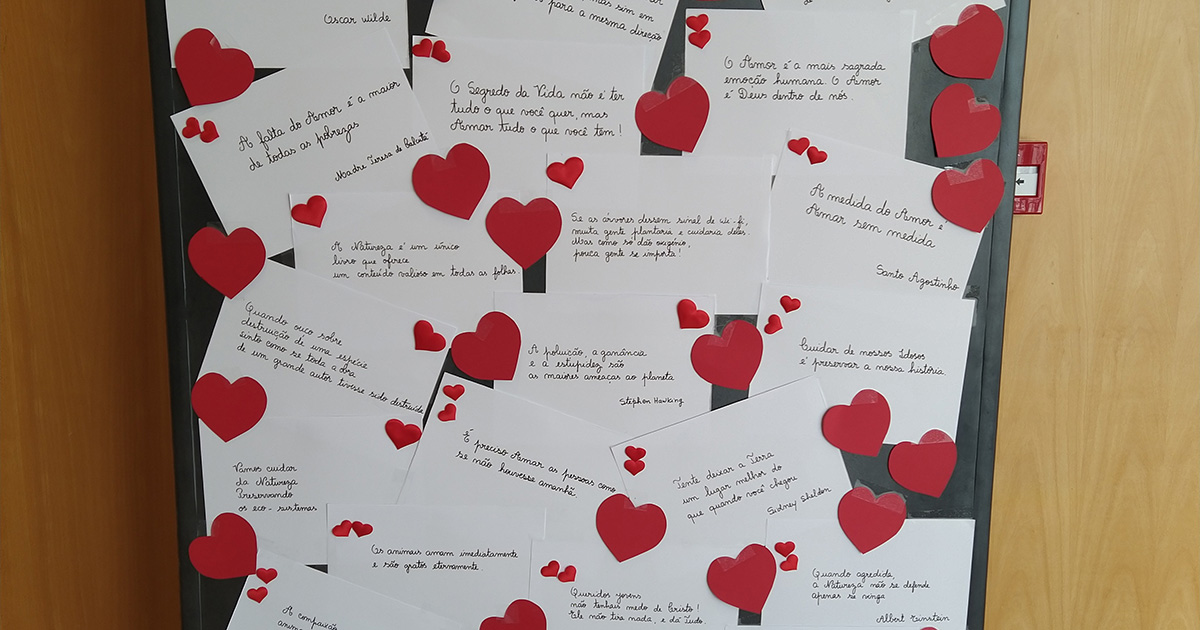 Oscar Wilde
mas sim em
para a mesma direção
de
O Amor é a mais sagrada
emoção humana. O Amor
é Deus dentro de nós.
O Segredo da Vida não é ter
tudo o que você quer, mas
Amar tudo o que você tem!
A falta do Amor é a maior
de todas as pobrezas
Madre Teresa de
A medida do Amor é
Amar sem medida
Santo Agostinho
Se as árvores dessem sinal de Wi-fi,
muita gente plantaria e cuidaria delas.
Mas como só dão oxigénio,
pouca gente se importa!
A Natureza é um único
livro que oferece
um conteúdo valioso em todas as folhas.
Quando ouço sobre
destruição de uma espécie
sinto como se toda a obra
de um grande autor tivesse sido destruída
A poluição, a ganância
e a estupidez são
as maiores ameaças ao planeta
Stephen Hawking
Cuidar de nossos Idosos
é preservar a nossa história
É preciso Amar as pessoas como
se não houvesse amanhã.
Tente deixar a Terra
um lugar melhor do
que quando você chegou
Sidney Sheldon
Vamos cuidar
da Natureza
Preservando
os eco-sistemas
Os animais amam imediatamente
e são gratos eternamente
Queridos jovens
não tenhais medo de Cristo!
Ele não tira nada, e dá Tudo.
Quando agredida,
a Natureza não se defende
apenas se vinga
Albert Einstein
A compaixão